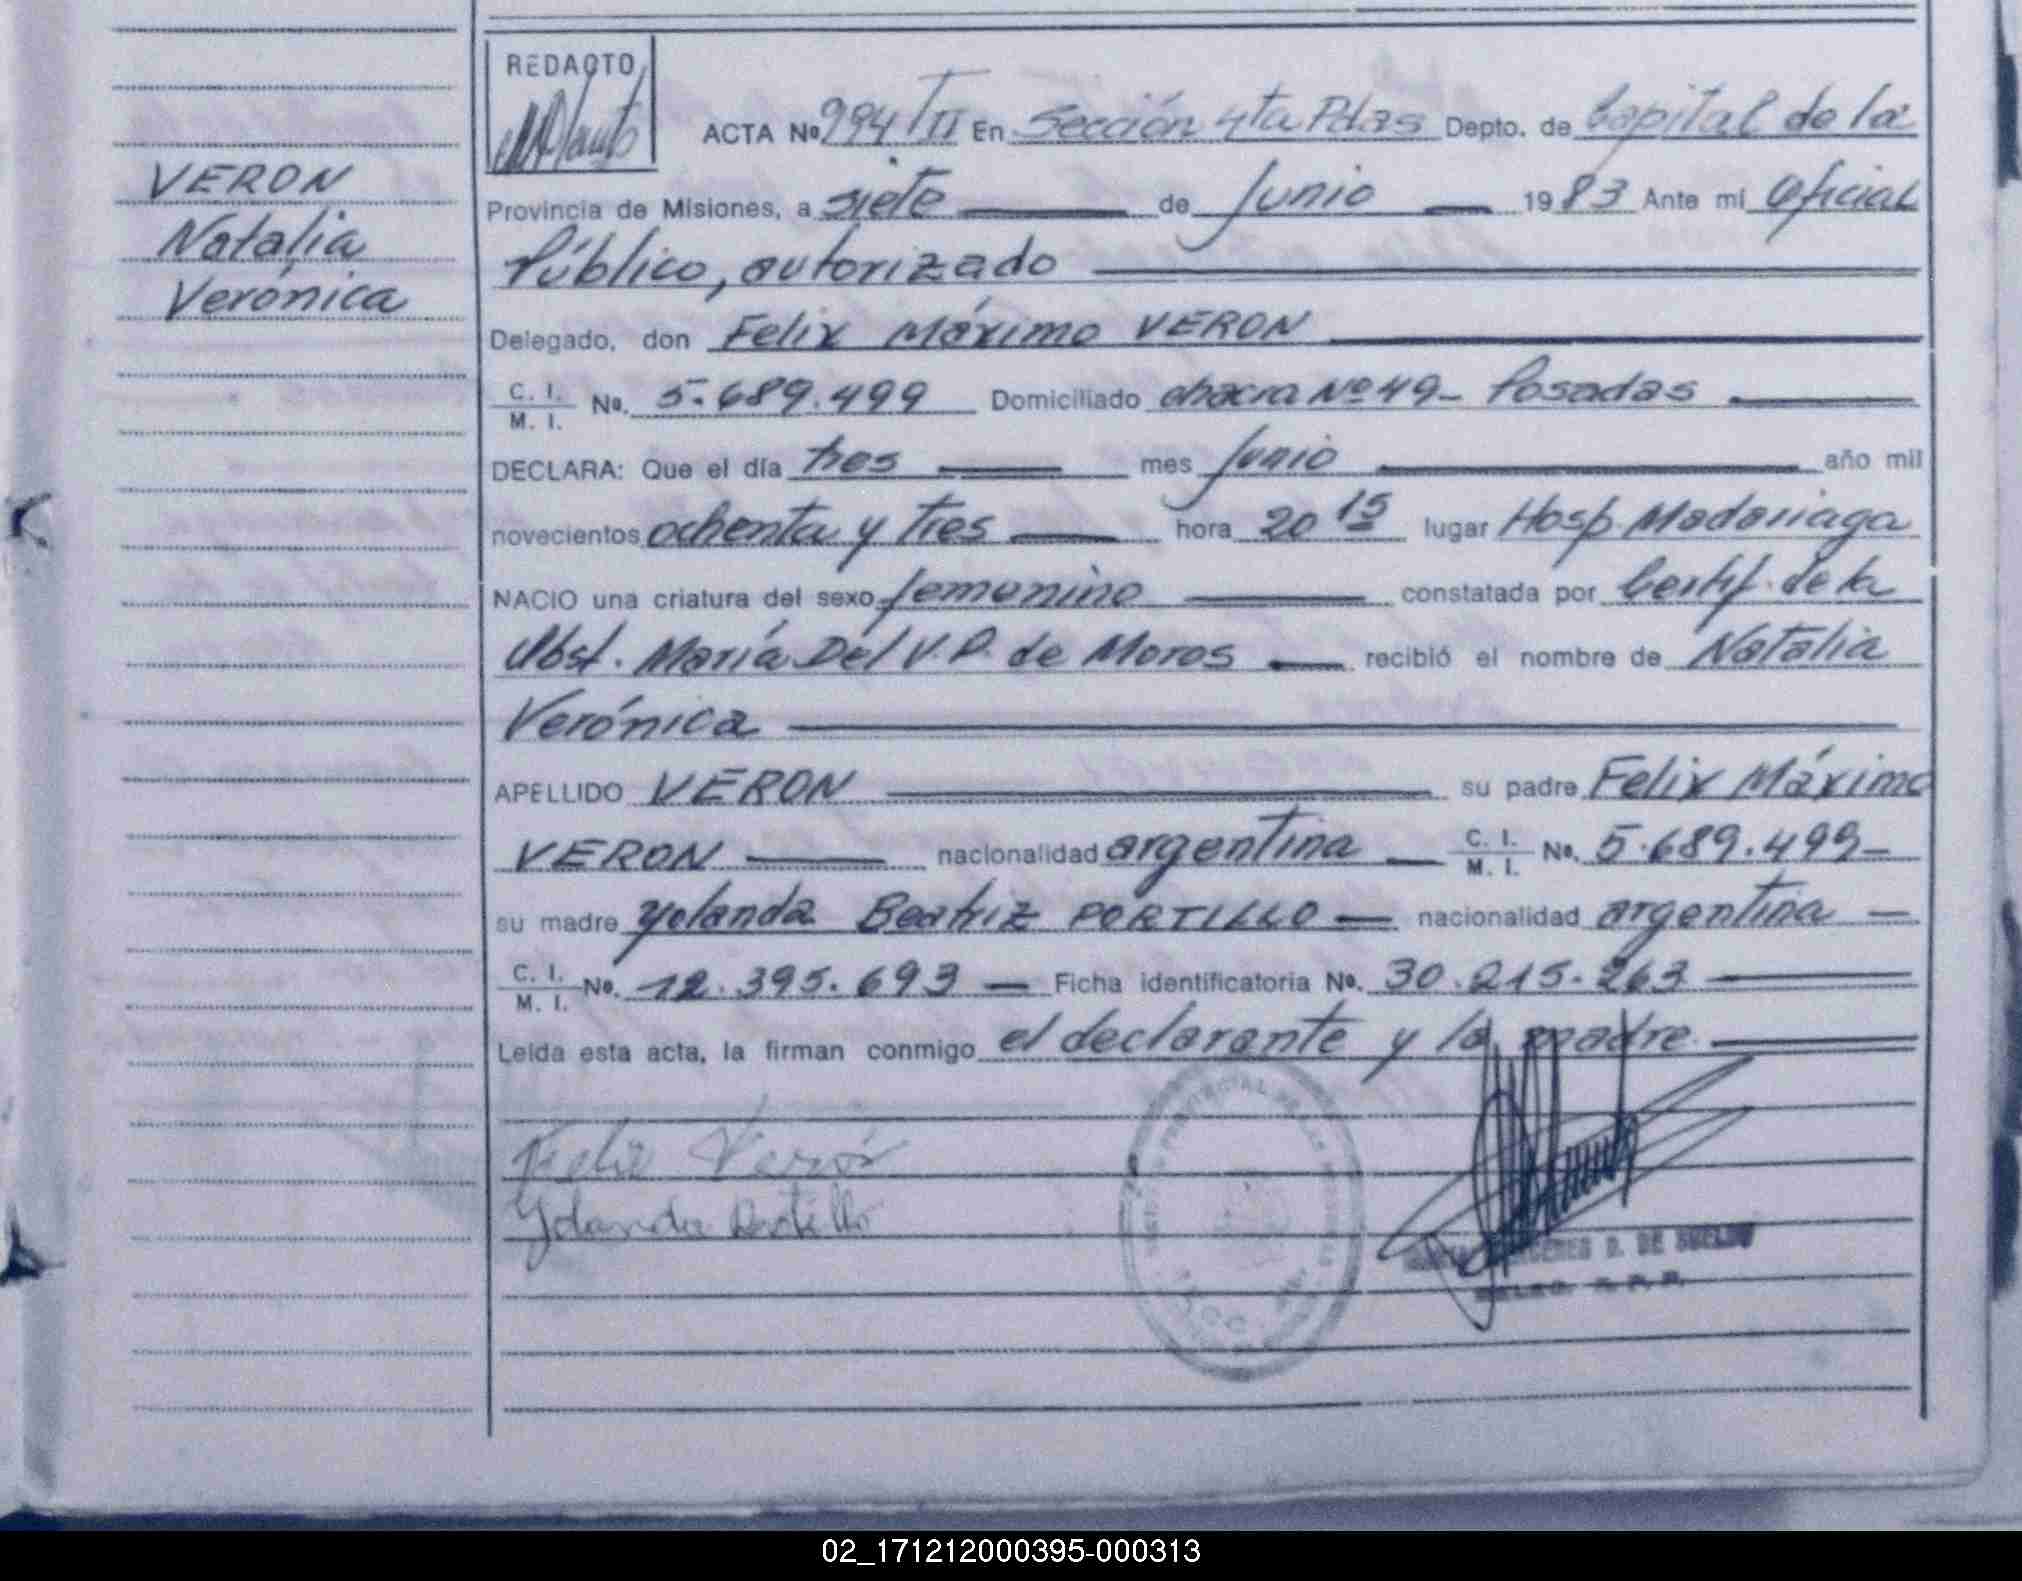 VERON
Natalia
Verónica
REDACTO
ACTA No 994/TII En Sección 4ta Pdas Depto. de Capital de la
Provincia de Misiones, a siete de Junio 1983 Ante mi Oficial
Público, autorizado
Delegado, don Felix Máximo VERON
C. I. / M. I. No. 5.689.499 Domiciliado chacra Nº 49- Posadas
DECLARA: Que el día tres mes Junio año mil
novecientos ochenta y tres hora 20 15 lugar Hosp. Madariaga
NACIO una criatura del sexo femenino constatada por Certif. de la
Obst. María Del V.P. de Moros recibió el nombre de Natalia
Verónica
APELLIDO VERON su padre Felix Máximo
VERON nacionalidad argentina C. I. / M. I. No. 5.689.499-
su madre Yolanda Beatriz PORTILLO nacionalidad argentina
C. I. / M. I. No. 12.395.693 Ficha identificatoria No. 30.215.263
Leida esta acta, la firman conmigo el declarante y la madre
Felix Verón
Yolanda Portillo
D. DE
02_171212000395-000313